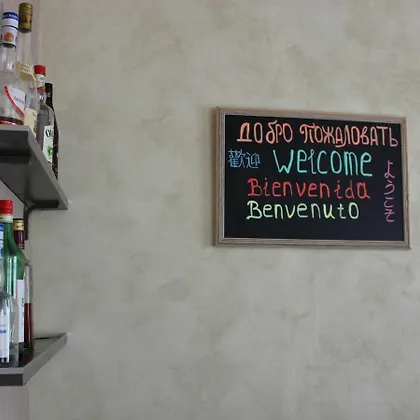 Добро пожаловать
歡迎 Welcome
Bienvenida
Benvenuto
ようこそ